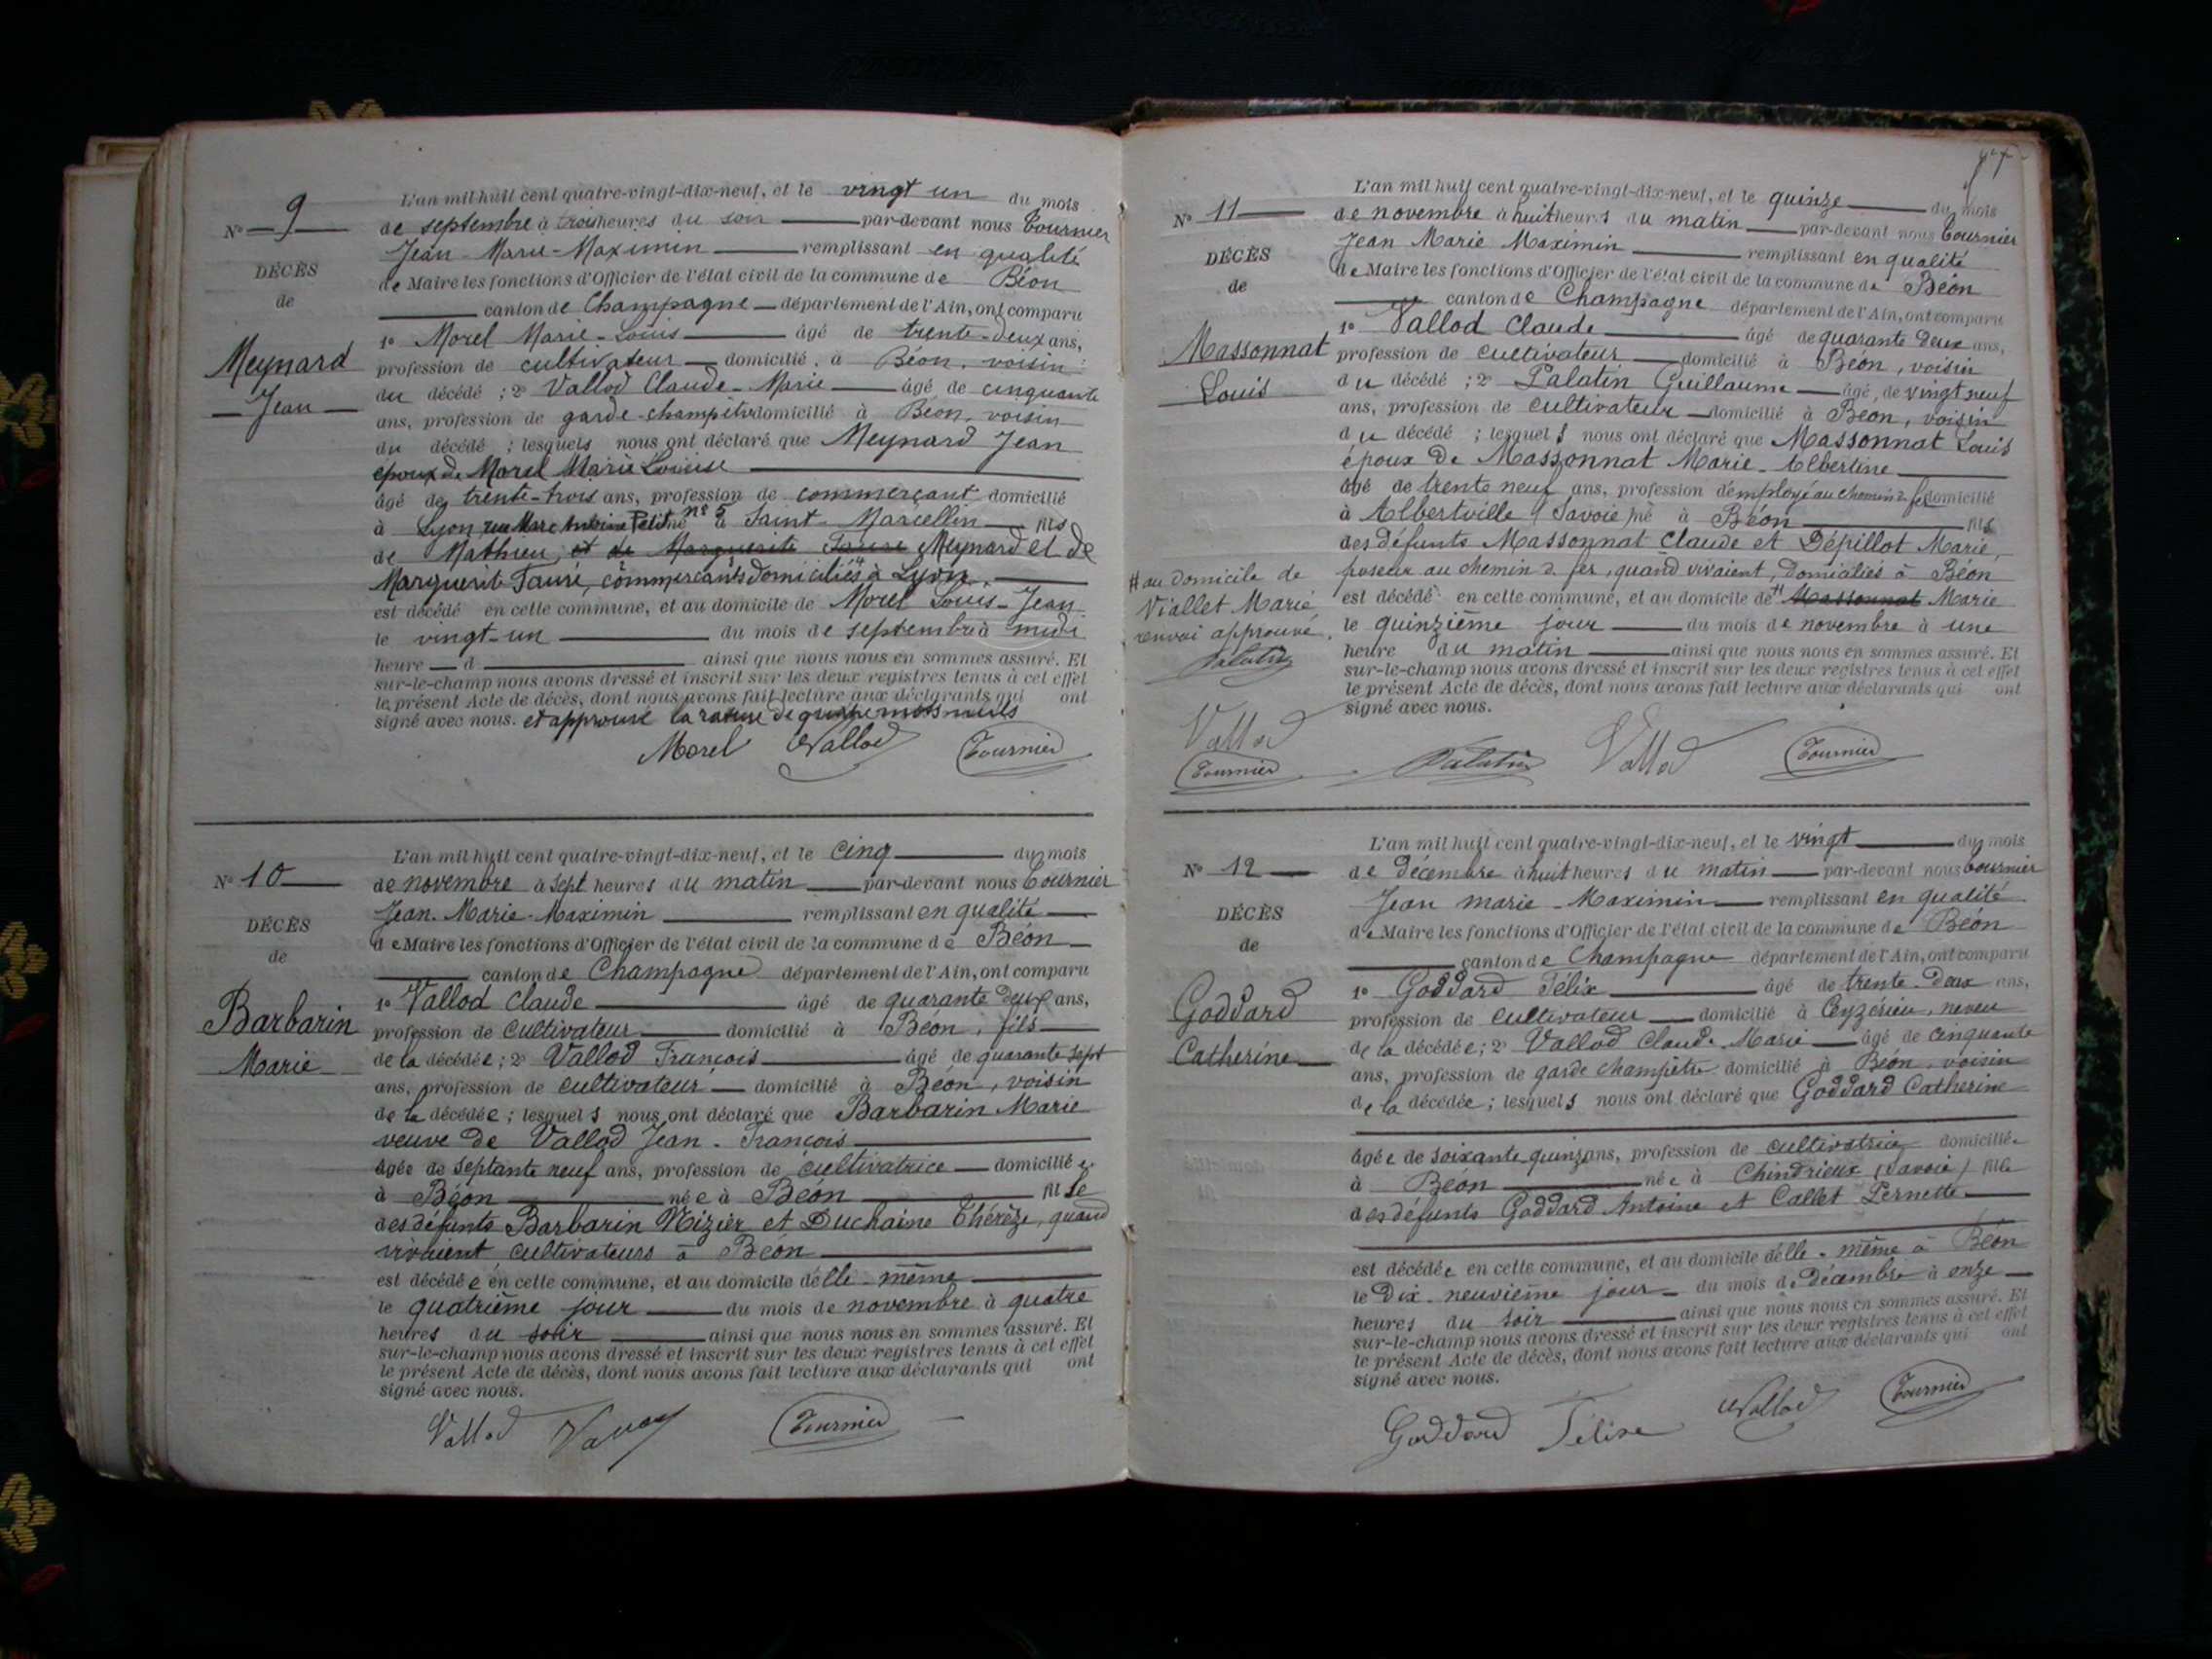 N° 9
DÉCÈS
de
Meynard
Jean
L'an mil huit cent quatre-vingt-dix-neuf, et le vingt un du mois
de septembre à trois heures du soir par-devant nous Tournier
Jean-Marie-Maximin remplissant en qualité
de Maire les fonctions d'Officier de l'état civil de la commune de Béon
canton de Champagne département de l'Ain, ont comparu
1° Morel Marie-Louis âgé de trente-deux ans,
profession de cultivateur domicilié à Béon, voisin
du décédé ; 2° Vallod Claude-Marie âgé de cinquante
ans, profession de garde-champêtre domicilié à Béon, voisin
du décédé ; lesquels nous ont déclaré que Meynard Jean
époux de Morel Marie Louise
âgé de trente-trois ans, profession de commerçant domicilié
à Lyon rue Marc Antoine Petit n° 5 né à Saint-Marcellin fils
de Mathieu, et de Marguerite Faure Meynard et de
Marguerite Fauré, commerçants domiciliés à Lyon.
est décédé en cette commune, et au domicile de Morel Louis-Jean
le vingt-un du mois de septembre à midi
heure d ainsi que nous nous en sommes assuré. Et
sur-le-champ nous avons dressé et inscrit sur les deux registres tenus à cet effet
le présent Acte de décès, dont nous avons fait lecture aux déclarants qui ont
signé avec nous. et approuvé la rature de quatre mots nuls
Morel Vallod Tournier
N° 10
DÉCÈS
de
Barbarin
Marie
L'an mil huit cent quatre-vingt-dix-neuf, et le cinq du mois
de novembre à sept heures du matin par-devant nous Tournier
Jean-Marie-Maximin remplissant en qualité
de Maire les fonctions d'Officier de l'état civil de la commune de Béon
canton de Champagne département de l'Ain, ont comparu
1° Vallod Claude âgé de quarante deux ans,
profession de cultivateur domicilié à Béon, fils
de la décédée ; 2° Vallod François âgé de quarante sept
ans, profession de cultivateur domicilié à Béon, voisin
de la décédée ; lesquels nous ont déclaré que Barbarin Marie
veuve de Vallod Jean-François
âgée de septante neuf ans, profession de cultivatrice domiciliée
à Béon née à Béon fille
des défunts Barbarin Nizier et Duchaine Thérèze, quand
vivaient cultivateurs à Béon
est décédée en cette commune, et au domicile d'elle-même
le quatrième jour du mois de novembre à quatre
heures du soir ainsi que nous nous en sommes assuré. Et
sur-le-champ nous avons dressé et inscrit sur les deux registres tenus à cet effet
le présent Acte de décès, dont nous avons fait lecture aux déclarants qui ont
signé avec nous.
Vallod Tournier
N° 11
DÉCÈS
de
Massonnat
Louis
L'an mil huit cent quatre-vingt-dix-neuf, et le quinze du mois
de novembre à huit heures du matin par-devant nous Tournier
Jean Marie Maximin remplissant en qualité
de Maire les fonctions d'Officier de l'état civil de la commune de Béon
canton de Champagne département de l'Ain, ont comparu
1° Vallod Claude âgé de quarante deux ans,
profession de cultivateur domicilié à Béon, voisin
du décédé ; 2° Palatin Guillaume âgé de vingt neuf
ans, profession de cultivateur domicilié à Béon, voisin
du décédé ; lesquels nous ont déclaré que Massonnat Louis
époux de Massonnat Marie-Albertine
âgé de trente neuf ans, profession d'employé au chemin de fer domicilié
à Albertville (Savoie) né à Béon fils
des défunts Massonnat Claude et Dépillot Marie,
poseur au chemin de fer, quand vivaient, domiciliés à Béon
est décédé en cette commune, et au domicile de # Massonnat Marie
le quinzième jour du mois de novembre à une
heure du matin ainsi que nous nous en sommes assuré. Et
sur-le-champ nous avons dressé et inscrit sur les deux registres tenus à cet effet
le présent Acte de décès, dont nous avons fait lecture aux déclarants qui ont
signé avec nous.
# au domicile de
Viallet Marie
renvoi approuvé.
Palatin
Vallod
Tournier
Palatin Vallod Tournier
N° 12
DÉCÈS
de
Goddard
Catherine
L'an mil huit cent quatre-vingt-dix-neuf, et le vingt du mois
de décembre à huit heures du matin par-devant nous Tournier
Jean marie-Maximin remplissant en qualité
de Maire les fonctions d'Officier de l'état civil de la commune de Béon
canton de Champagne département de l'Ain, ont comparu
1° Goddard Félix âgé de trente-deux ans,
profession de cultivateur domicilié à Ceyzérieu, neveu
de la décédée ; 2° Vallod Claude-Marie âgé de cinquante
ans, profession de garde champêtre domicilié à Béon, voisin
de la décédée ; lesquels nous ont déclaré que Goddard Catherine
âgée de soixante-quinze ans, profession de cultivatrice domiciliée
à Béon née à Chindrieux (Savoie) fille
des défunts Goddard Antoine et Callet Pernette
est décédée en cette commune, et au domicile d'elle-même à Béon
le dix-neuvième jour du mois de décembre à onze
heures du soir ainsi que nous nous en sommes assuré. Et
sur-le-champ nous avons dressé et inscrit sur les deux registres tenus à cet effet
le présent Acte de décès, dont nous avons fait lecture aux déclarants qui ont
signé avec nous.
Goddard Félix Vallod Tournier